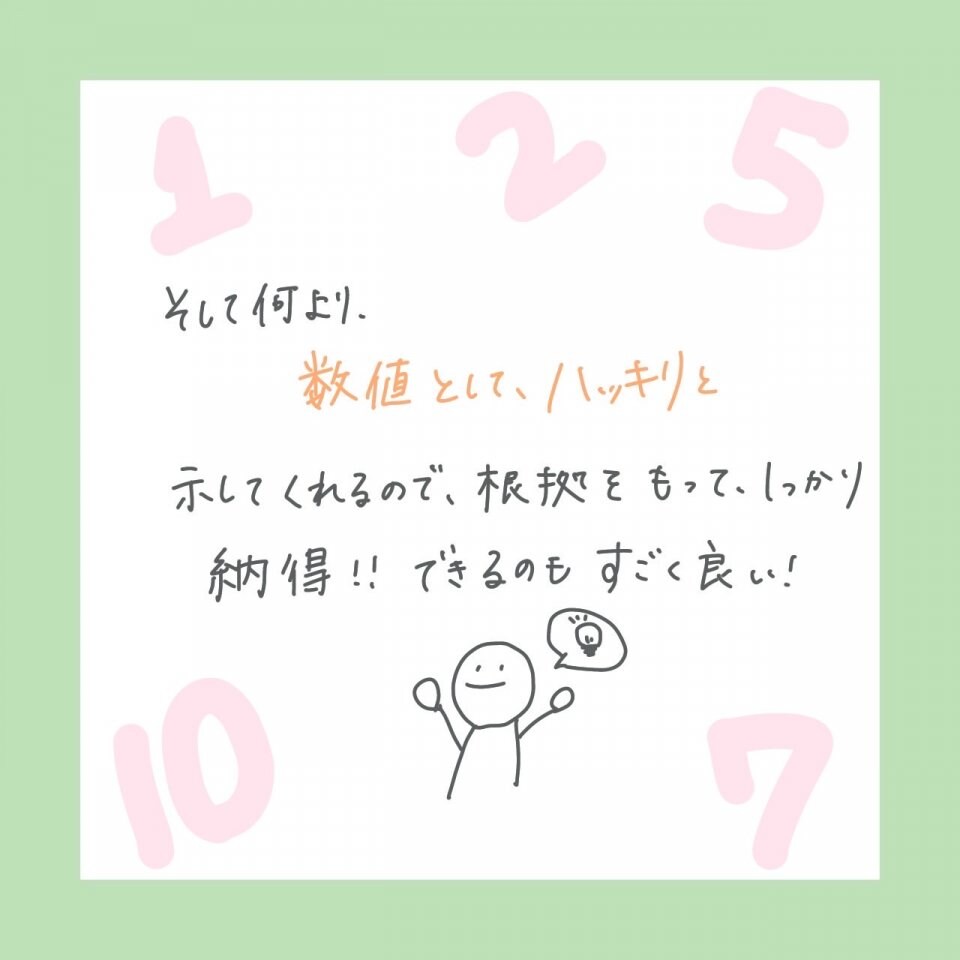 1 2 5
そして何より、
数値として、ハッキリと
示してくれるので、根拠をもって、しっかり
納得!! できるのも すごく良い!
10 7